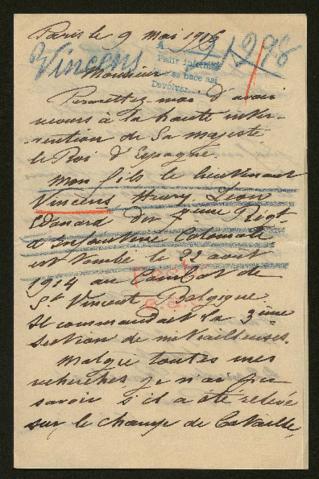 Paris le 9 Mai 1916
Vincens
91298
A
Monsieur
Permettez-moi d'avoir
recours à la haute inter-
vention de Sa majesté
le Roi d'Espagne.
Mon fils le lieutenant
Vincens Henry
Edouard du 7eme Regt
d'infanterie Coloniale
est tombé le 22 août
1914 au Combat de
St Vincent Belgique
Il commandait la 3ème
section de mitrailleuses.
Malgré toutes mes
recherches je n'ai pu
savoir s'il a été relevé
sur le champs de bataille,